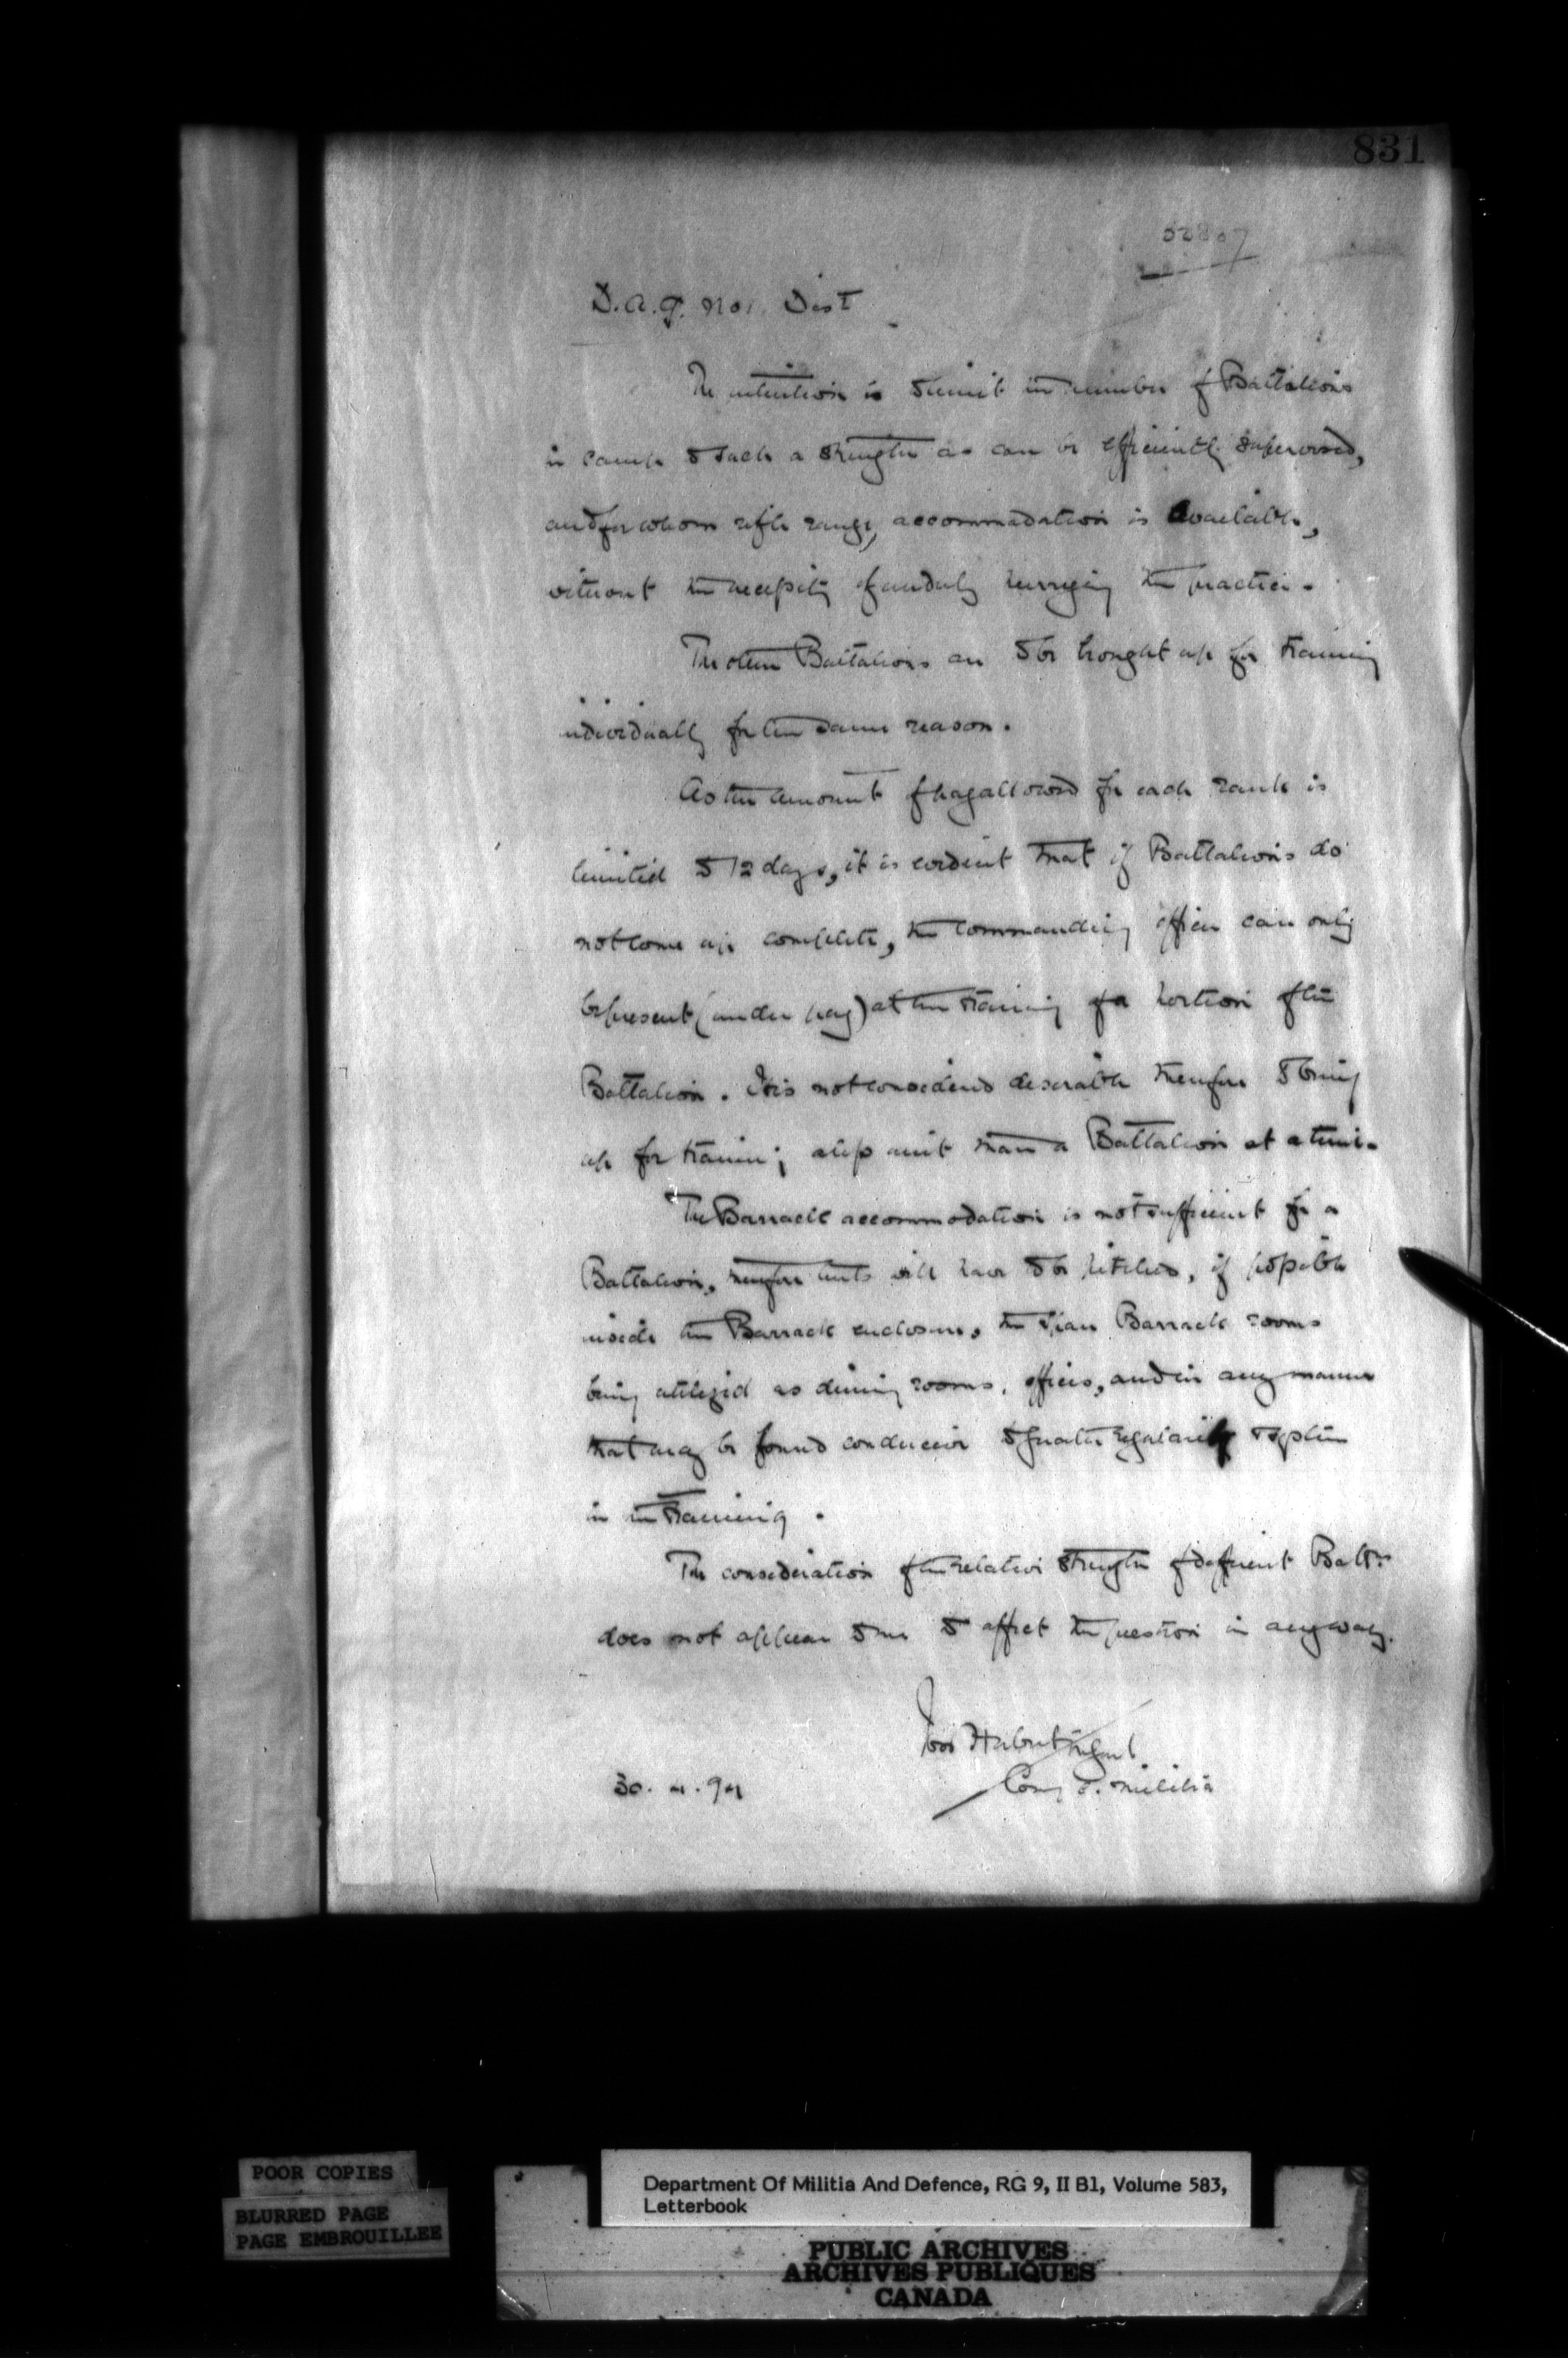 831
52867
D.A.G. No 1. Dist
The intention is to limit the number of Battalions
in camp to such a strength as can be efficiently supervised,
and for whom rifle range accommodation is available,
without the necessity of unduly hurrying the practice.
The other Battalions are to be brought up for training
individually for the same reason.
As the amount of pay allowed for each rank is
limited to 12 days, it is evident that if Battalions do
not come up complete, the Commanding officer can only
be present (under pay) at the training of a portion of the
Battalion. It is not considered desirable therefore to bring
up for training a less unit than a Battalion at a time.
The Barrack accommodation is not sufficient for a
Battalion, therefore tents will have to be pitched, if possible
inside the Barrack enclosure, the Barrack rooms
being utilized as dining rooms, offices, and in any manner
that may be found conducive to greater regularity
in the Training.
The consideration of the relative strength of different Battns
does not appear to me to affect the question in any way.
Ivor Herbert
30. 4. 94
Comg. Militia
POOR COPIES
BLURRED PAGE
PAGE EMBROUILLEE
Department Of Militia And Defence, RG 9, II B1, Volume 583,
Letterbook
PUBLIC ARCHIVES
ARCHIVES PUBLIQUES
CANADA